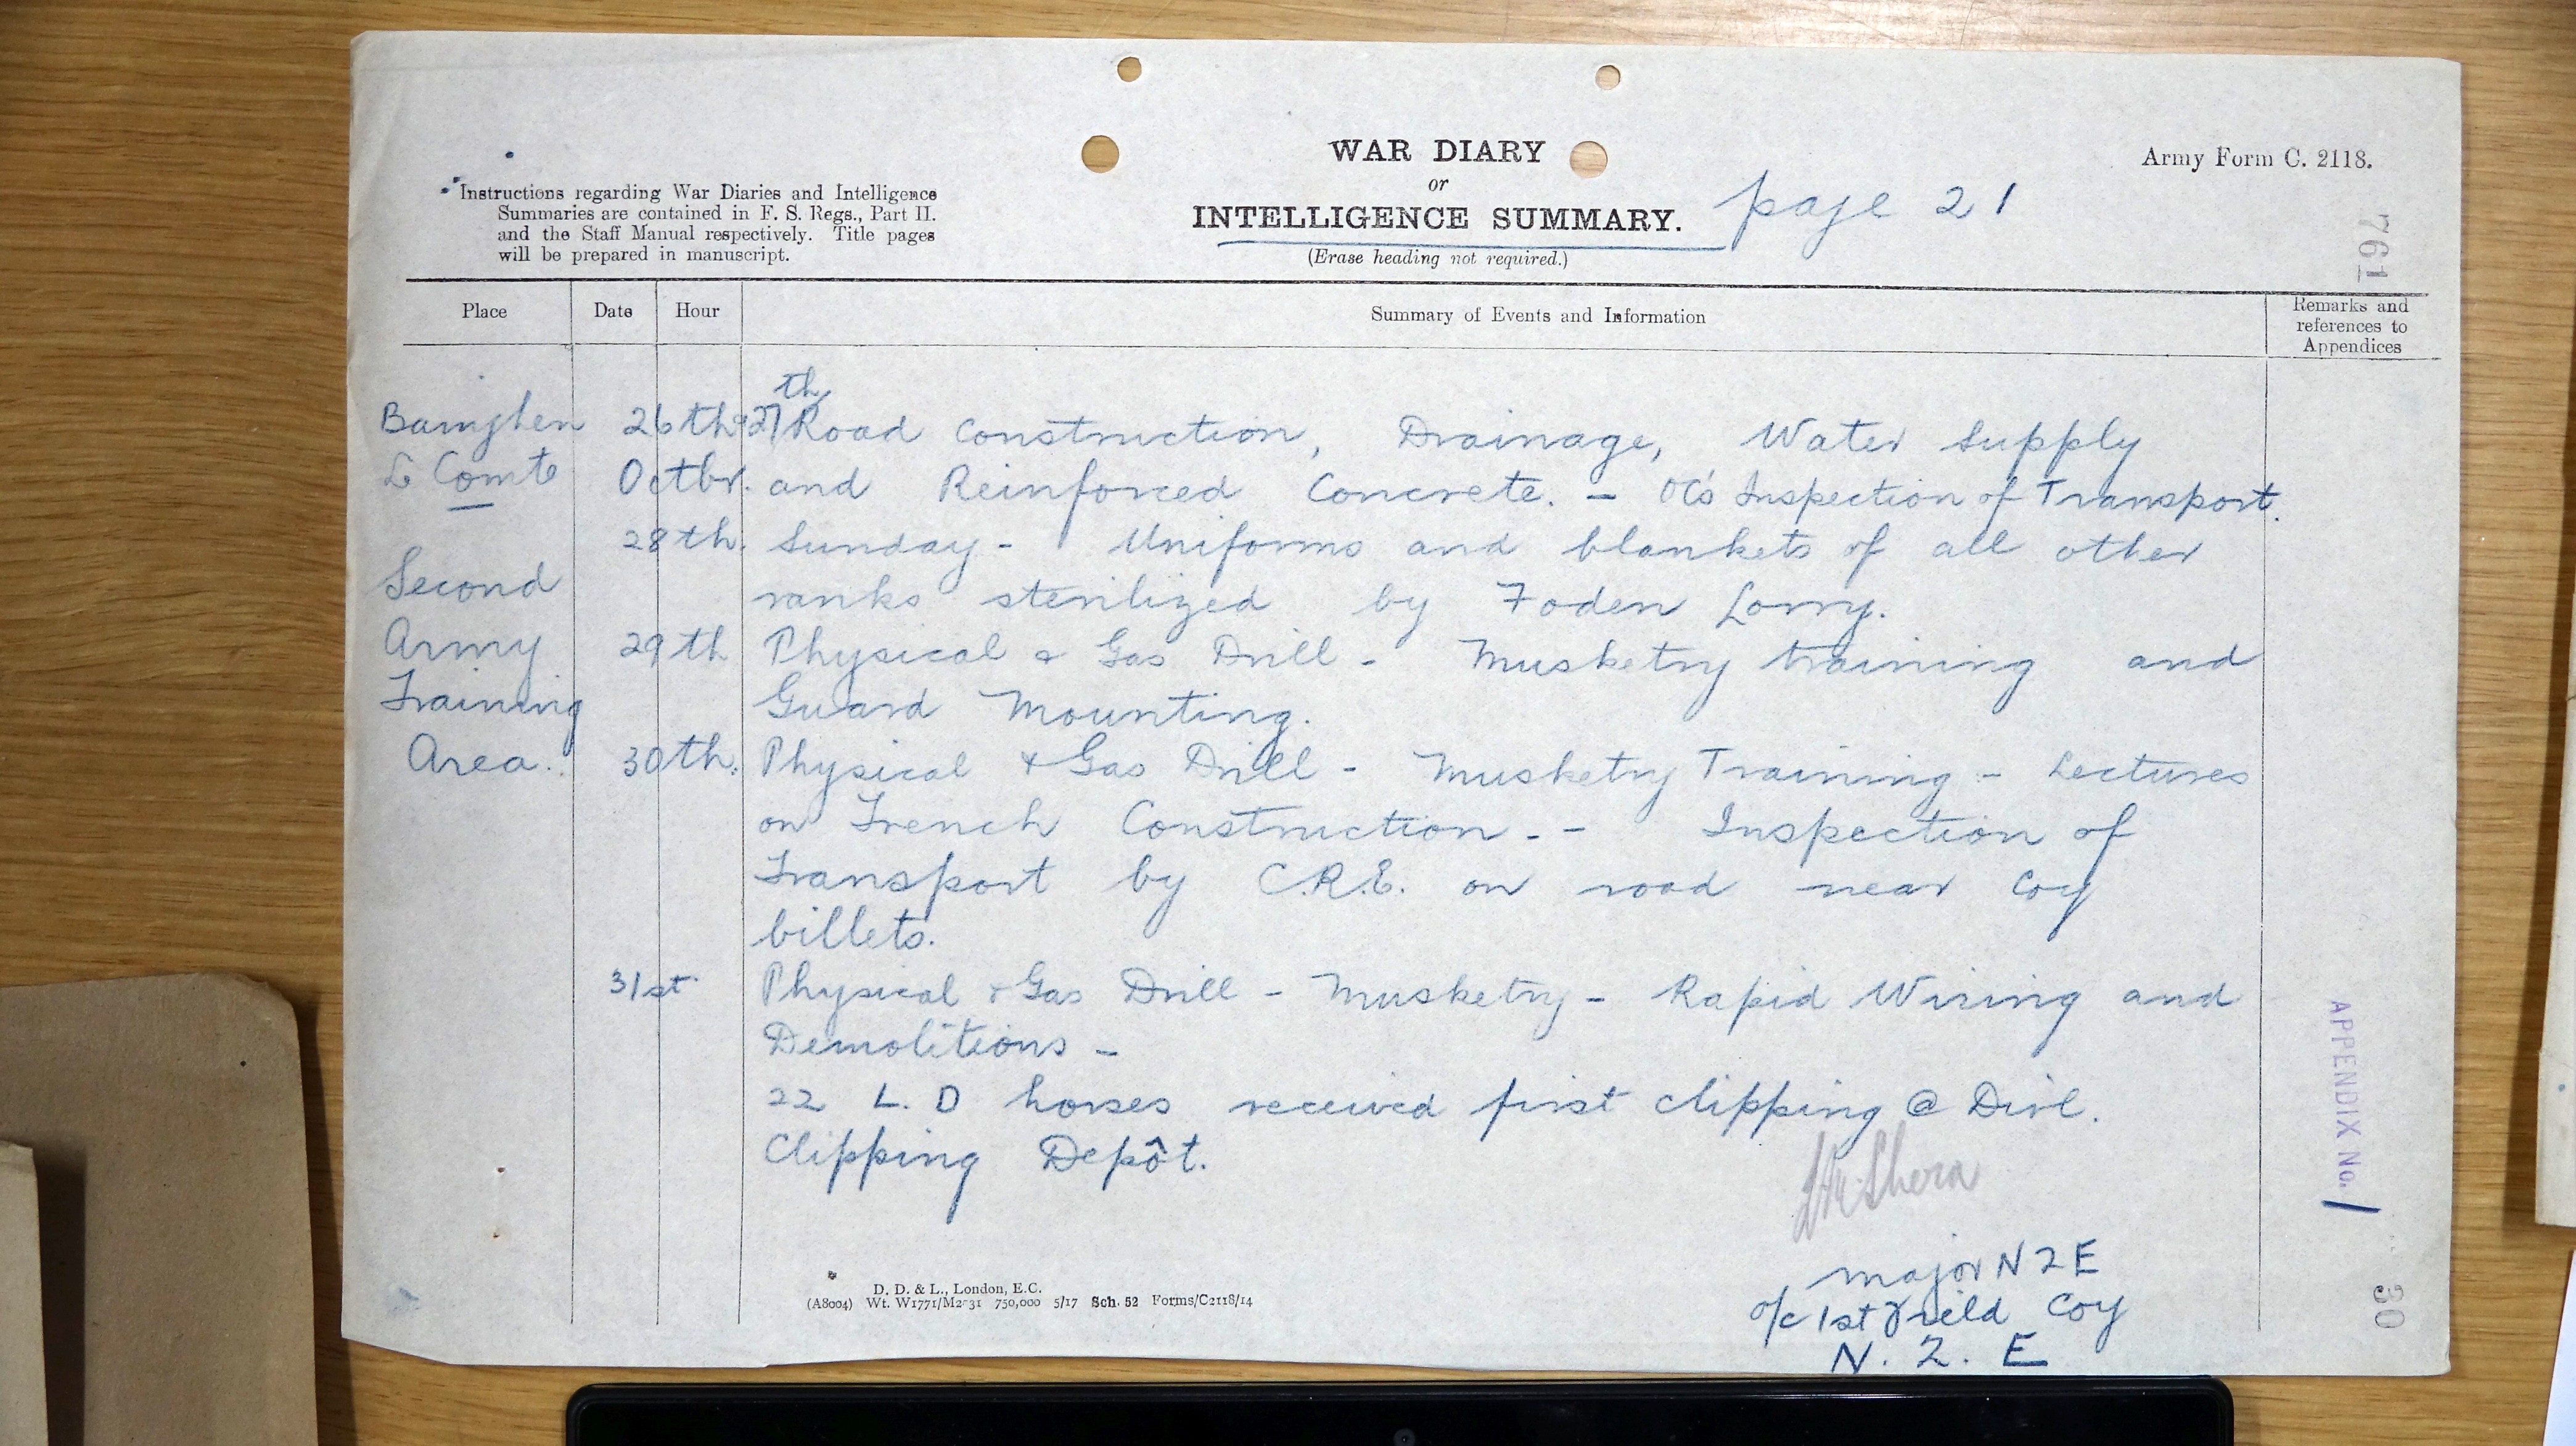 Army Form C. 2118.
WAR DIARY
or
INTELLIGENCE SUMMARY.
page 21
(Erase heading not required.)
Instructions regarding War Diaries and Intelligence
Summaries are contained in F. S. Regs., Part II.
and the Staff Manual respectively. Title pages
will be prepared in manuscript.
761
Place Date Hour Summary of Events and Information Remarks and references to Appendices
Bainghen 26th & 27th Road Construction, Drainage, Water Supply
Le Comte Octbr. and Reinforced Concrete. - OC's Inspection of Transport.
28th. Sunday - Uniforms and blankets of all other
Second ranks sterilized by Foden Lorry.
Army 29th Physical & Gas Drill - Musketry training and
Training Guard Mounting.
Area. 30th. Physical & Gas Drill - Musketry Training - Lectures
on Trench Construction - - Inspection of
Transport by C.R.E. on road near Coy
billets.
31st. Physical & Gas Drill - Musketry - Rapid Wiring and
Demolitions -
22 L. D horses received first clipping @ Divl.
Clipping Depôt.
Shera
Major N Z E
o/c 1st Field Coy
N. Z. E
APPENDIX No. 1
30
D. D. & L., London, E.C.
(A8004) Wt. W1771/M2031 750,000 5/17 Sch. 52 Forms/C2118/14